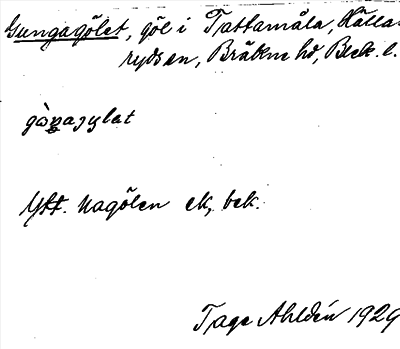 Gungagölet, göl i Tattamåla, Hälla-
ryds sn, Bräkne hd, Blek. l.
gòŋagylat
Ytt. Nagölen ek, bek.
Tage Ahldén 1929